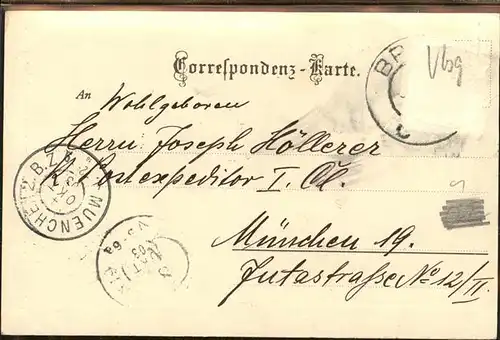 Correspondenz-Karte.
Vbg
BR
An Wohlgeboren
Herrn Joseph Höllerer
K. Postexpeditor I. Cl.
MUENCHEN
B.Z.
München 19.
Jutastrasse No 12/II.